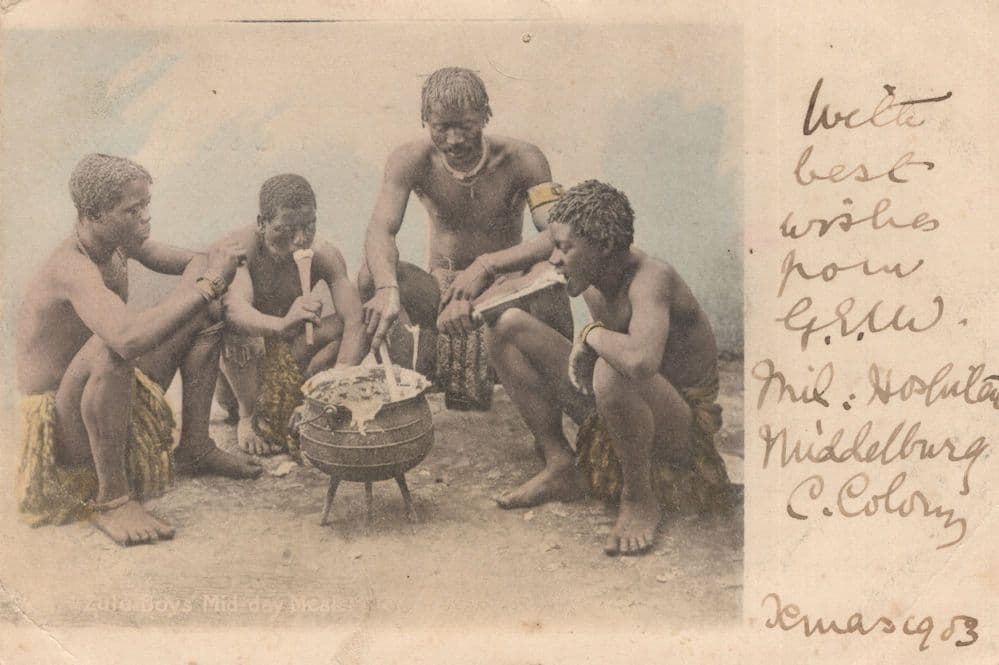 With
best
wishes
from
G.E.W.
Mil. Hospital
Middelburg
C. Colony
Xmas 1903
Zulu Boys' Mid-day Meal